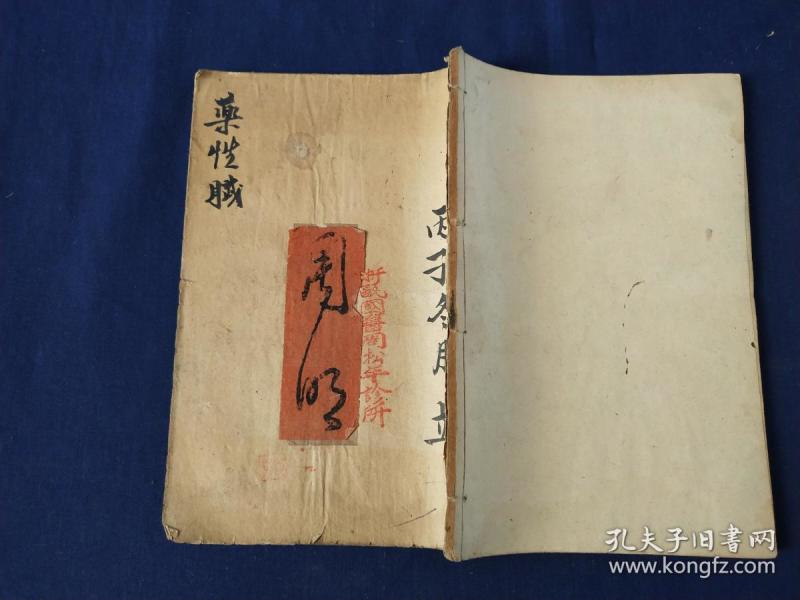 藥性臟
周明
浙甌國醫周松年診所
丙子冬月立
孔夫子旧书网
www.kongfz.com